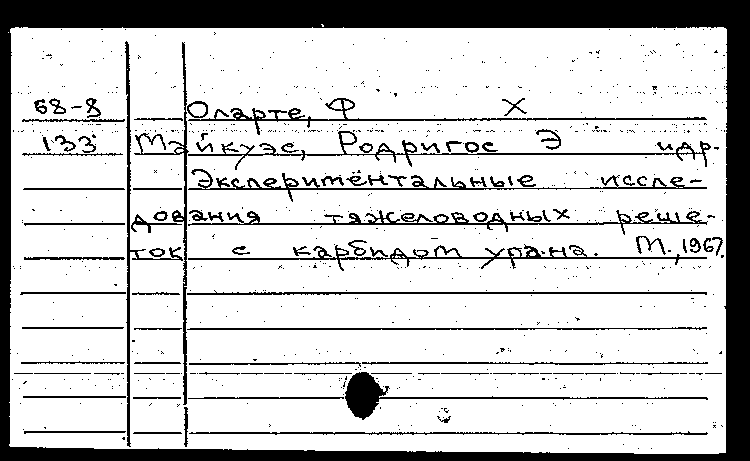 68-8 Оларте, Ф Х
133 Майкуэс, Родригос Э идр.
Экспериментальные иссле-
дования тяжеловодных реше-
ток с карбидом урана. М.,1967.